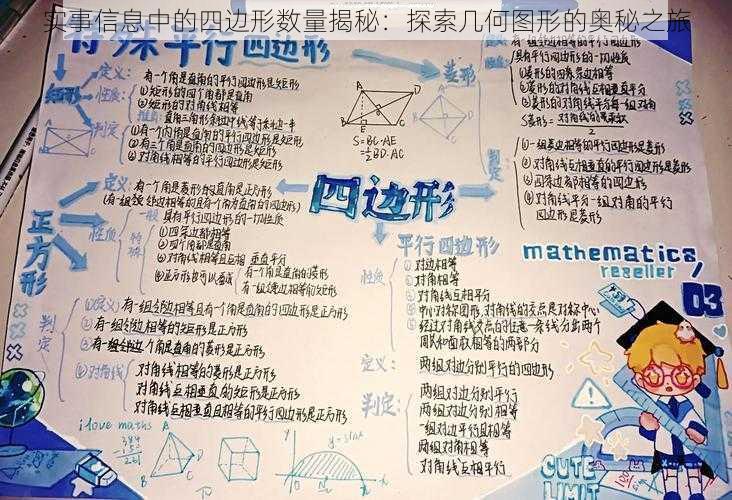 实事信息中的四边形数量揭秘：探索几何图形的奥秘之旅
特殊平行四边形
矩形
定义：有一个角是直角的平行四边形是矩形
性质：①矩形的四个角都是直角
②矩形的对角线相等
推论：直角三角形斜边中线等于斜边一半
判定
①有一个内角是直角的平行四边形是矩形
②有三个角是直角的四边形是矩形
③对角线相等的平行四边形是矩形
菱形
有一组邻边相等的平行四边形
具有平行四边形的一切性质
①菱形的四条边相等
②菱形的对角线互相垂直平分
③菱形的对角线平分每一组对角
S菱形=对角线的乘积
2
判定：
①一组邻边相等的平行四边形是菱形
②对角线互相垂直的平行四边形是菱形
③四条边都相等的四边形
④对角线平分一组对角的平行
四边形是菱形
A
B
C
D
E
S=BC·AE
=½BD·AC
四边形
正方形
定义：有一个角是直角的菱形是正方形
性质
一般
具有平行四边形的一切性质
特殊
①四条边都相等
②四个角都是直角
③对角线相等且互相垂直平分
④正方形也可以看成
有一个角是直角的菱形
有一组邻边相等的矩形
判定
①(定义)有一组邻边相等且有一个角是直角的四边形是正方形
②有一组邻边相等的矩形是正方形
③有一个角是直角的菱形是正方形
④对角线
对角线相等的菱形是正方形
对角线互相垂直的矩形是正方形
对角线互相垂直且相等的平行四边形是正方形
平行四边形
性质
①对边相等
②对角相等
③对角线互相平分
④中心对称图形,对角线的交点是对称中心
⑤经过对角线交点的任意一条线分出两个
周长和面积相等的两部分
定义：两组对边分别平行的四边形
判定：
两组对边分别平行
两组对边分别相等
一组对边平行且相等
两组对角相等
对角线互相平分
mathematics
reseller
03
i love maths
y=sinx
CUTE
LIMIT